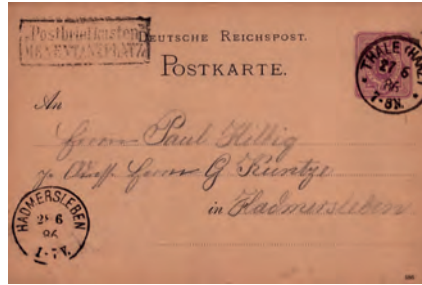 „Postbriefkasten"
HEXENTANZPLATZ
DEUTSCHE REICHSPOST.
POSTKARTE.
THALE (HARZ)
27 6
86
7-8N.
An
Herrn Paul Hillig
p. Adr. Herrn G Kuntze
in Hadmersleben
HADMERSLEBEN
28 6
86
1-7V.